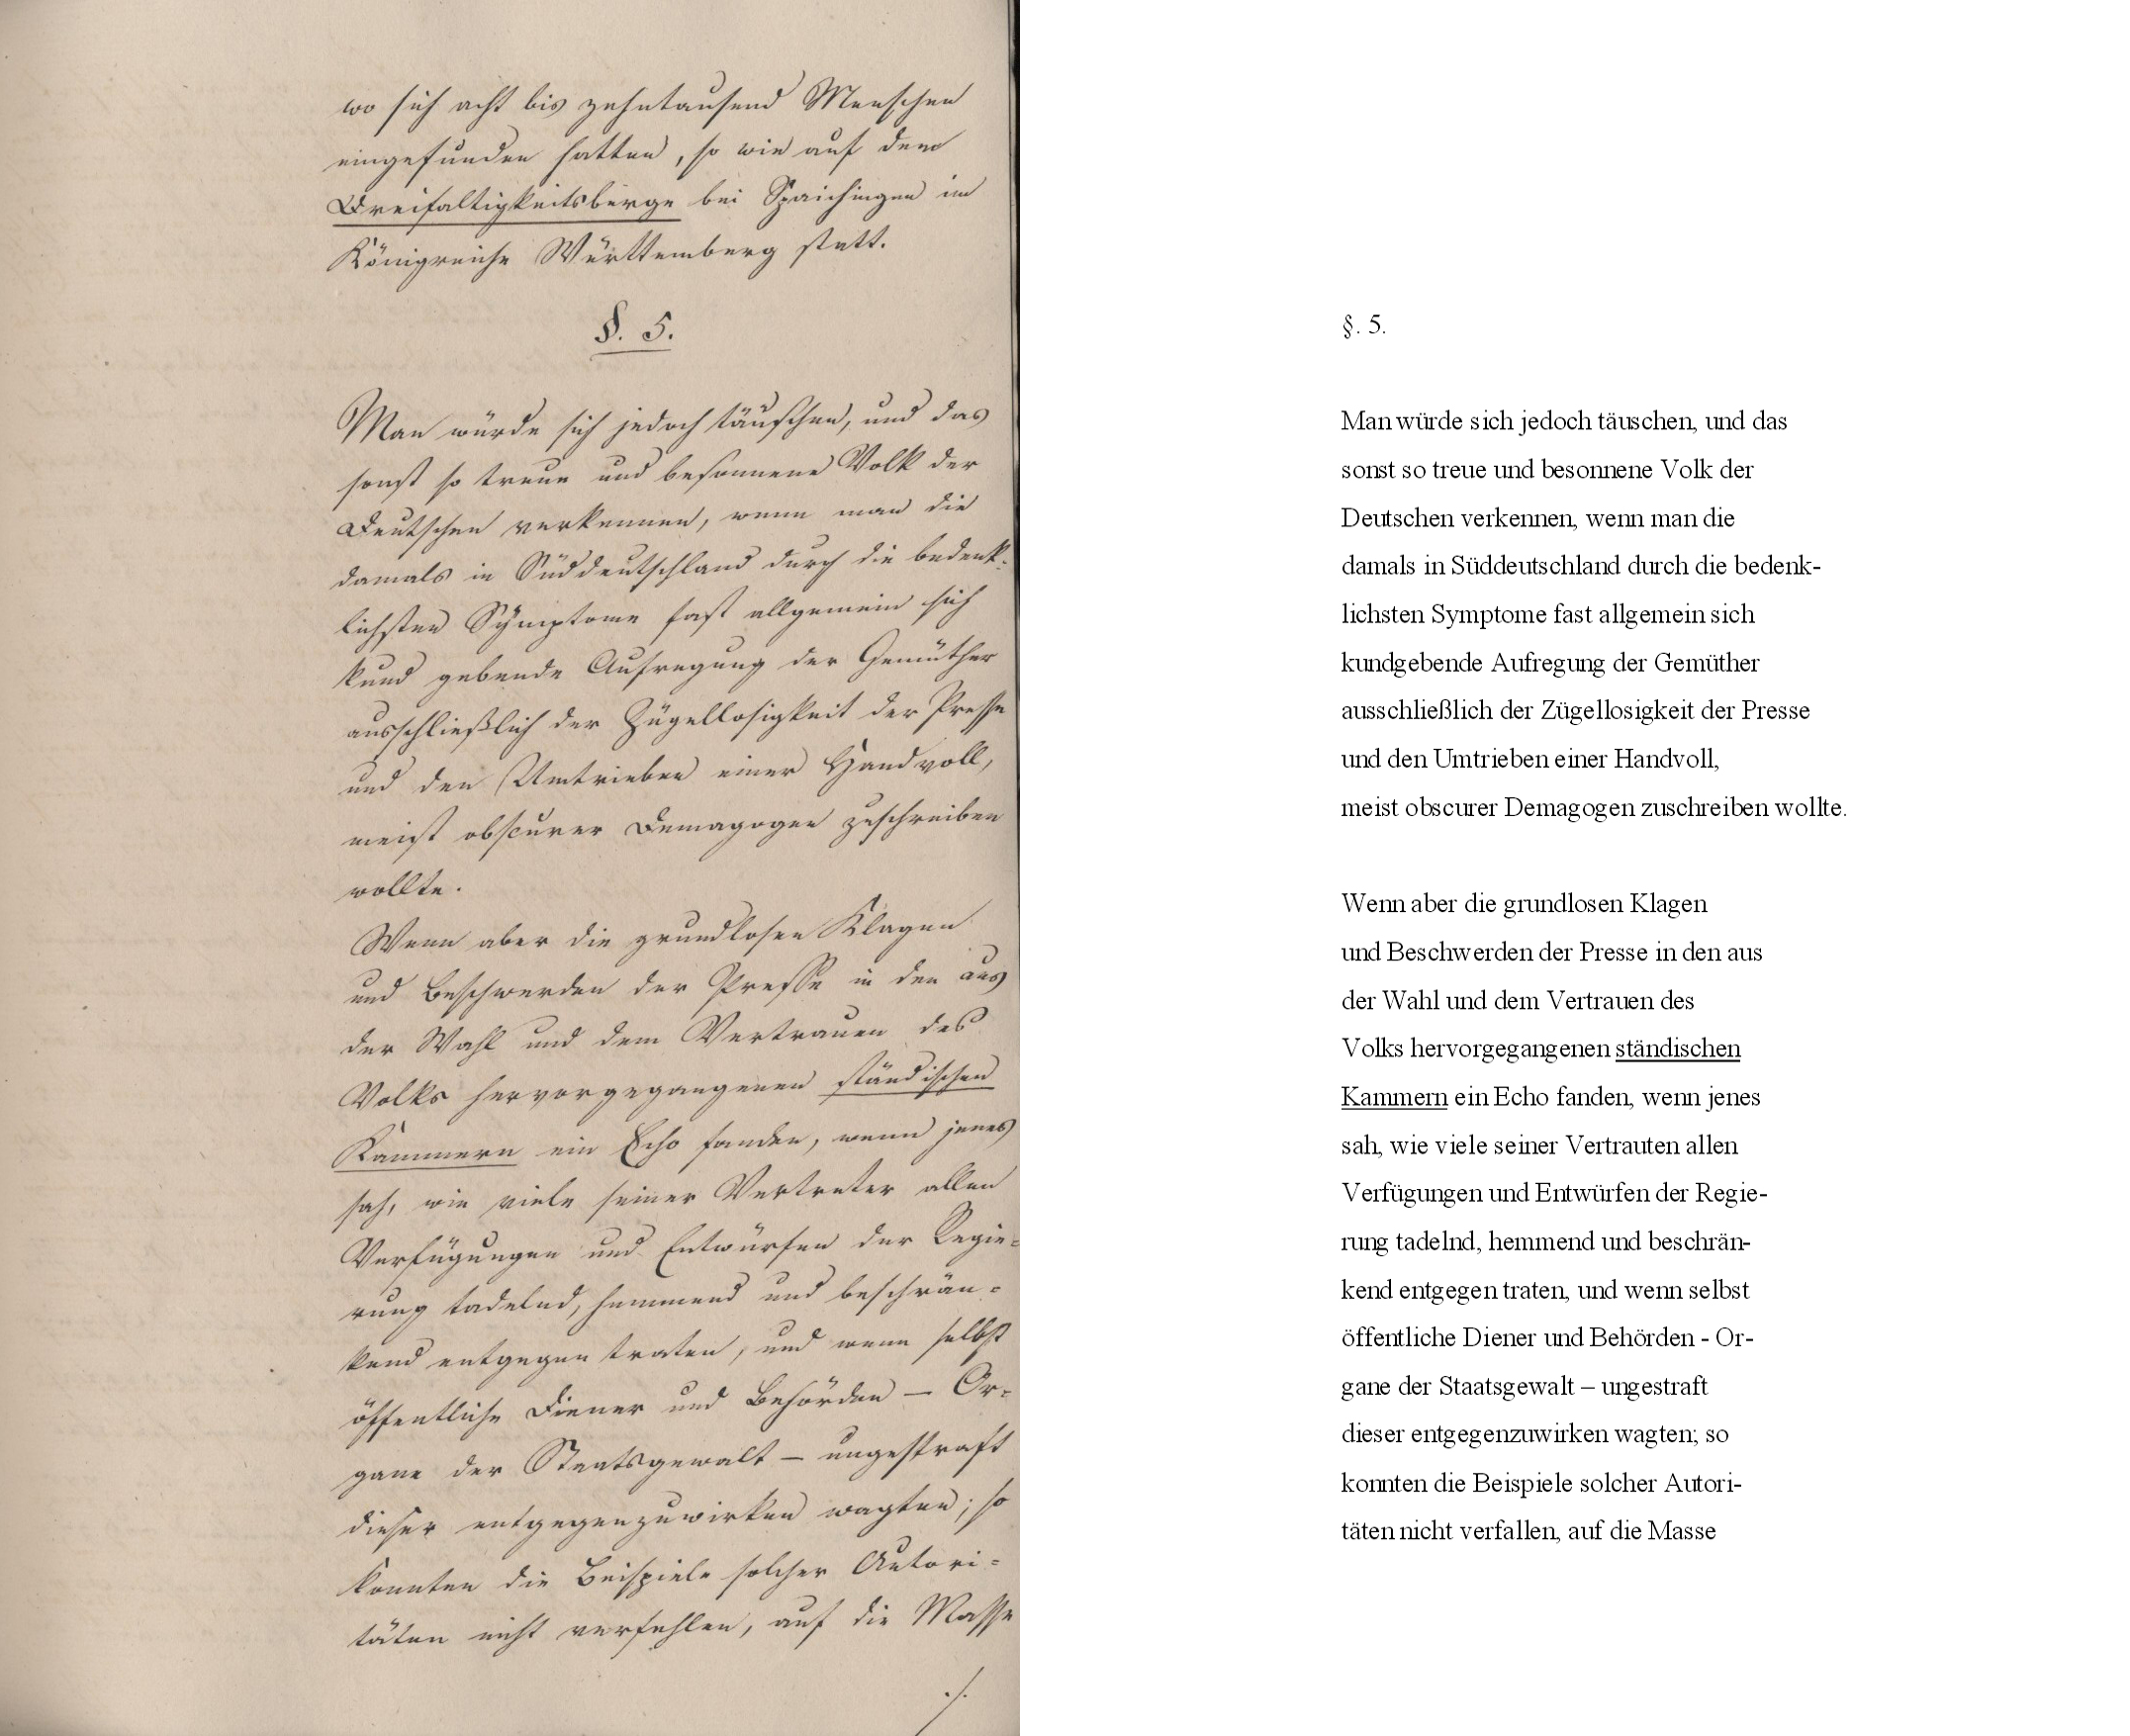 wo sich acht bis zehntausend Menschen
eingefunden hatten, so wie auf dem
Dreifaltigkeitsberge bei Spaichingen im
Königreiche Württemberg statt.
§. 5.
Man würde sich jedoch täuschen, und das
sonst so treue und besonnene Volk der
Deutschen verkennen, wenn man die
damals in Süddeutschland durch die bedenk-
lichsten Symptome fast allgemein sich
kund gebende Aufregung der Gemüther
ausschließlich der Zügellosigkeit der Presse
und den Umtrieben einer Handvoll,
meist obscurer Demagogen zuschreiben
wollte.
Wenn aber die grundlosen Klagen
und Beschwerden der Presse in den aus
der Wahl und dem Vertrauen des
Volks hervorgegangenen ständischen
Kammern ein Echo fanden, wenn jenes
sah, wie viele seiner Vertreter allen
Verfügungen und Entwürfen der Regie-
rung tadelnd, hemmend und beschrän-
kend entgegen traten, und wenn selbst
öffentliche Diener und Behörden – Or-
gane der Staatsgewalt – ungestraft
dieser entgegenzuwirken wagten; so
konnten die Beispiele solcher Autori-
täten nicht verfehlen, auf die Masse
./.
§. 5.
Man würde sich jedoch täuschen, und das
sonst so treue und besonnene Volk der
Deutschen verkennen, wenn man die
damals in Süddeutschland durch die bedenk-
lichsten Symptome fast allgemein sich
kundgebende Aufregung der Gemüther
ausschließlich der Zügellosigkeit der Presse
und den Umtrieben einer Handvoll,
meist obscurer Demagogen zuschreiben wollte.
Wenn aber die grundlosen Klagen
und Beschwerden der Presse in den aus
der Wahl und dem Vertrauen des
Volks hervorgegangenen ständischen
Kammern ein Echo fanden, wenn jenes
sah, wie viele seiner Vertrauten allen
Verfügungen und Entwürfen der Regie-
rung tadelnd, hemmend und beschrän-
kend entgegen traten, und wenn selbst
öffentliche Diener und Behörden - Or-
gane der Staatsgewalt – ungestraft
dieser entgegenzuwirken wagten; so
konnten die Beispiele solcher Autori-
täten nicht verfallen, auf die Masse